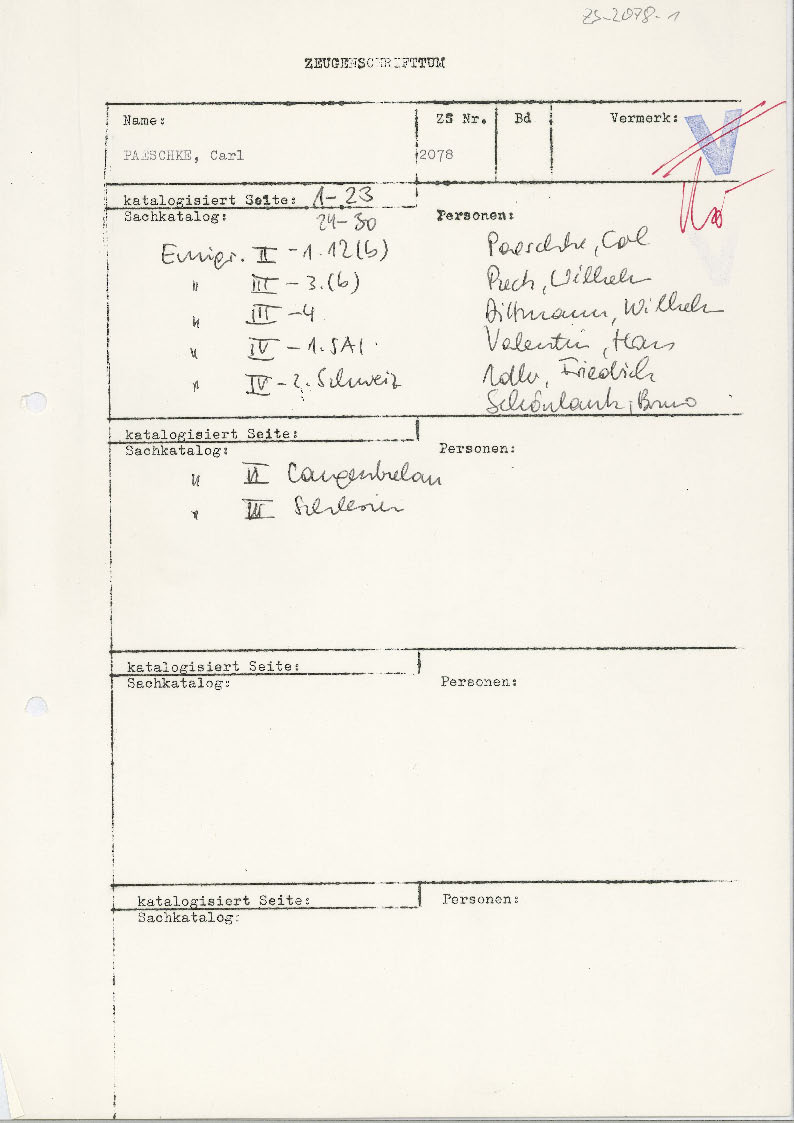 ZS-2078-1
ZEUGENSCHRIFTTUM
Name: ZS Nr. Bd Vermerk:
PAESCHKE, Carl 2078 V
katalogisiert Seite: 1-23
Sachkatalog: 24-30 Personen:
Emigr. II - 1.12(b) Paeschke, Carl
" III - 3.(b) Wilhelm
" III - 4. Dittmann, Wilhelm
" IV - 1. SAI. Valentin, Hans
" IV - 2. Schweiz Adler, Friedrich
Schönlank, Bruno
katalogisiert Seite:
Sachkatalog: Personen:
" VI Langenbielau
" Schlesien
katalogisiert Seite:
Sachkatalog: Personen:
katalogisiert Seite: Personen:
Sachkatalog: